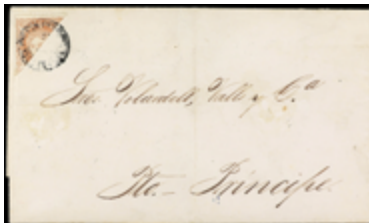 Sres. Vilardell, Valls y Cª
Pto. Príncipe